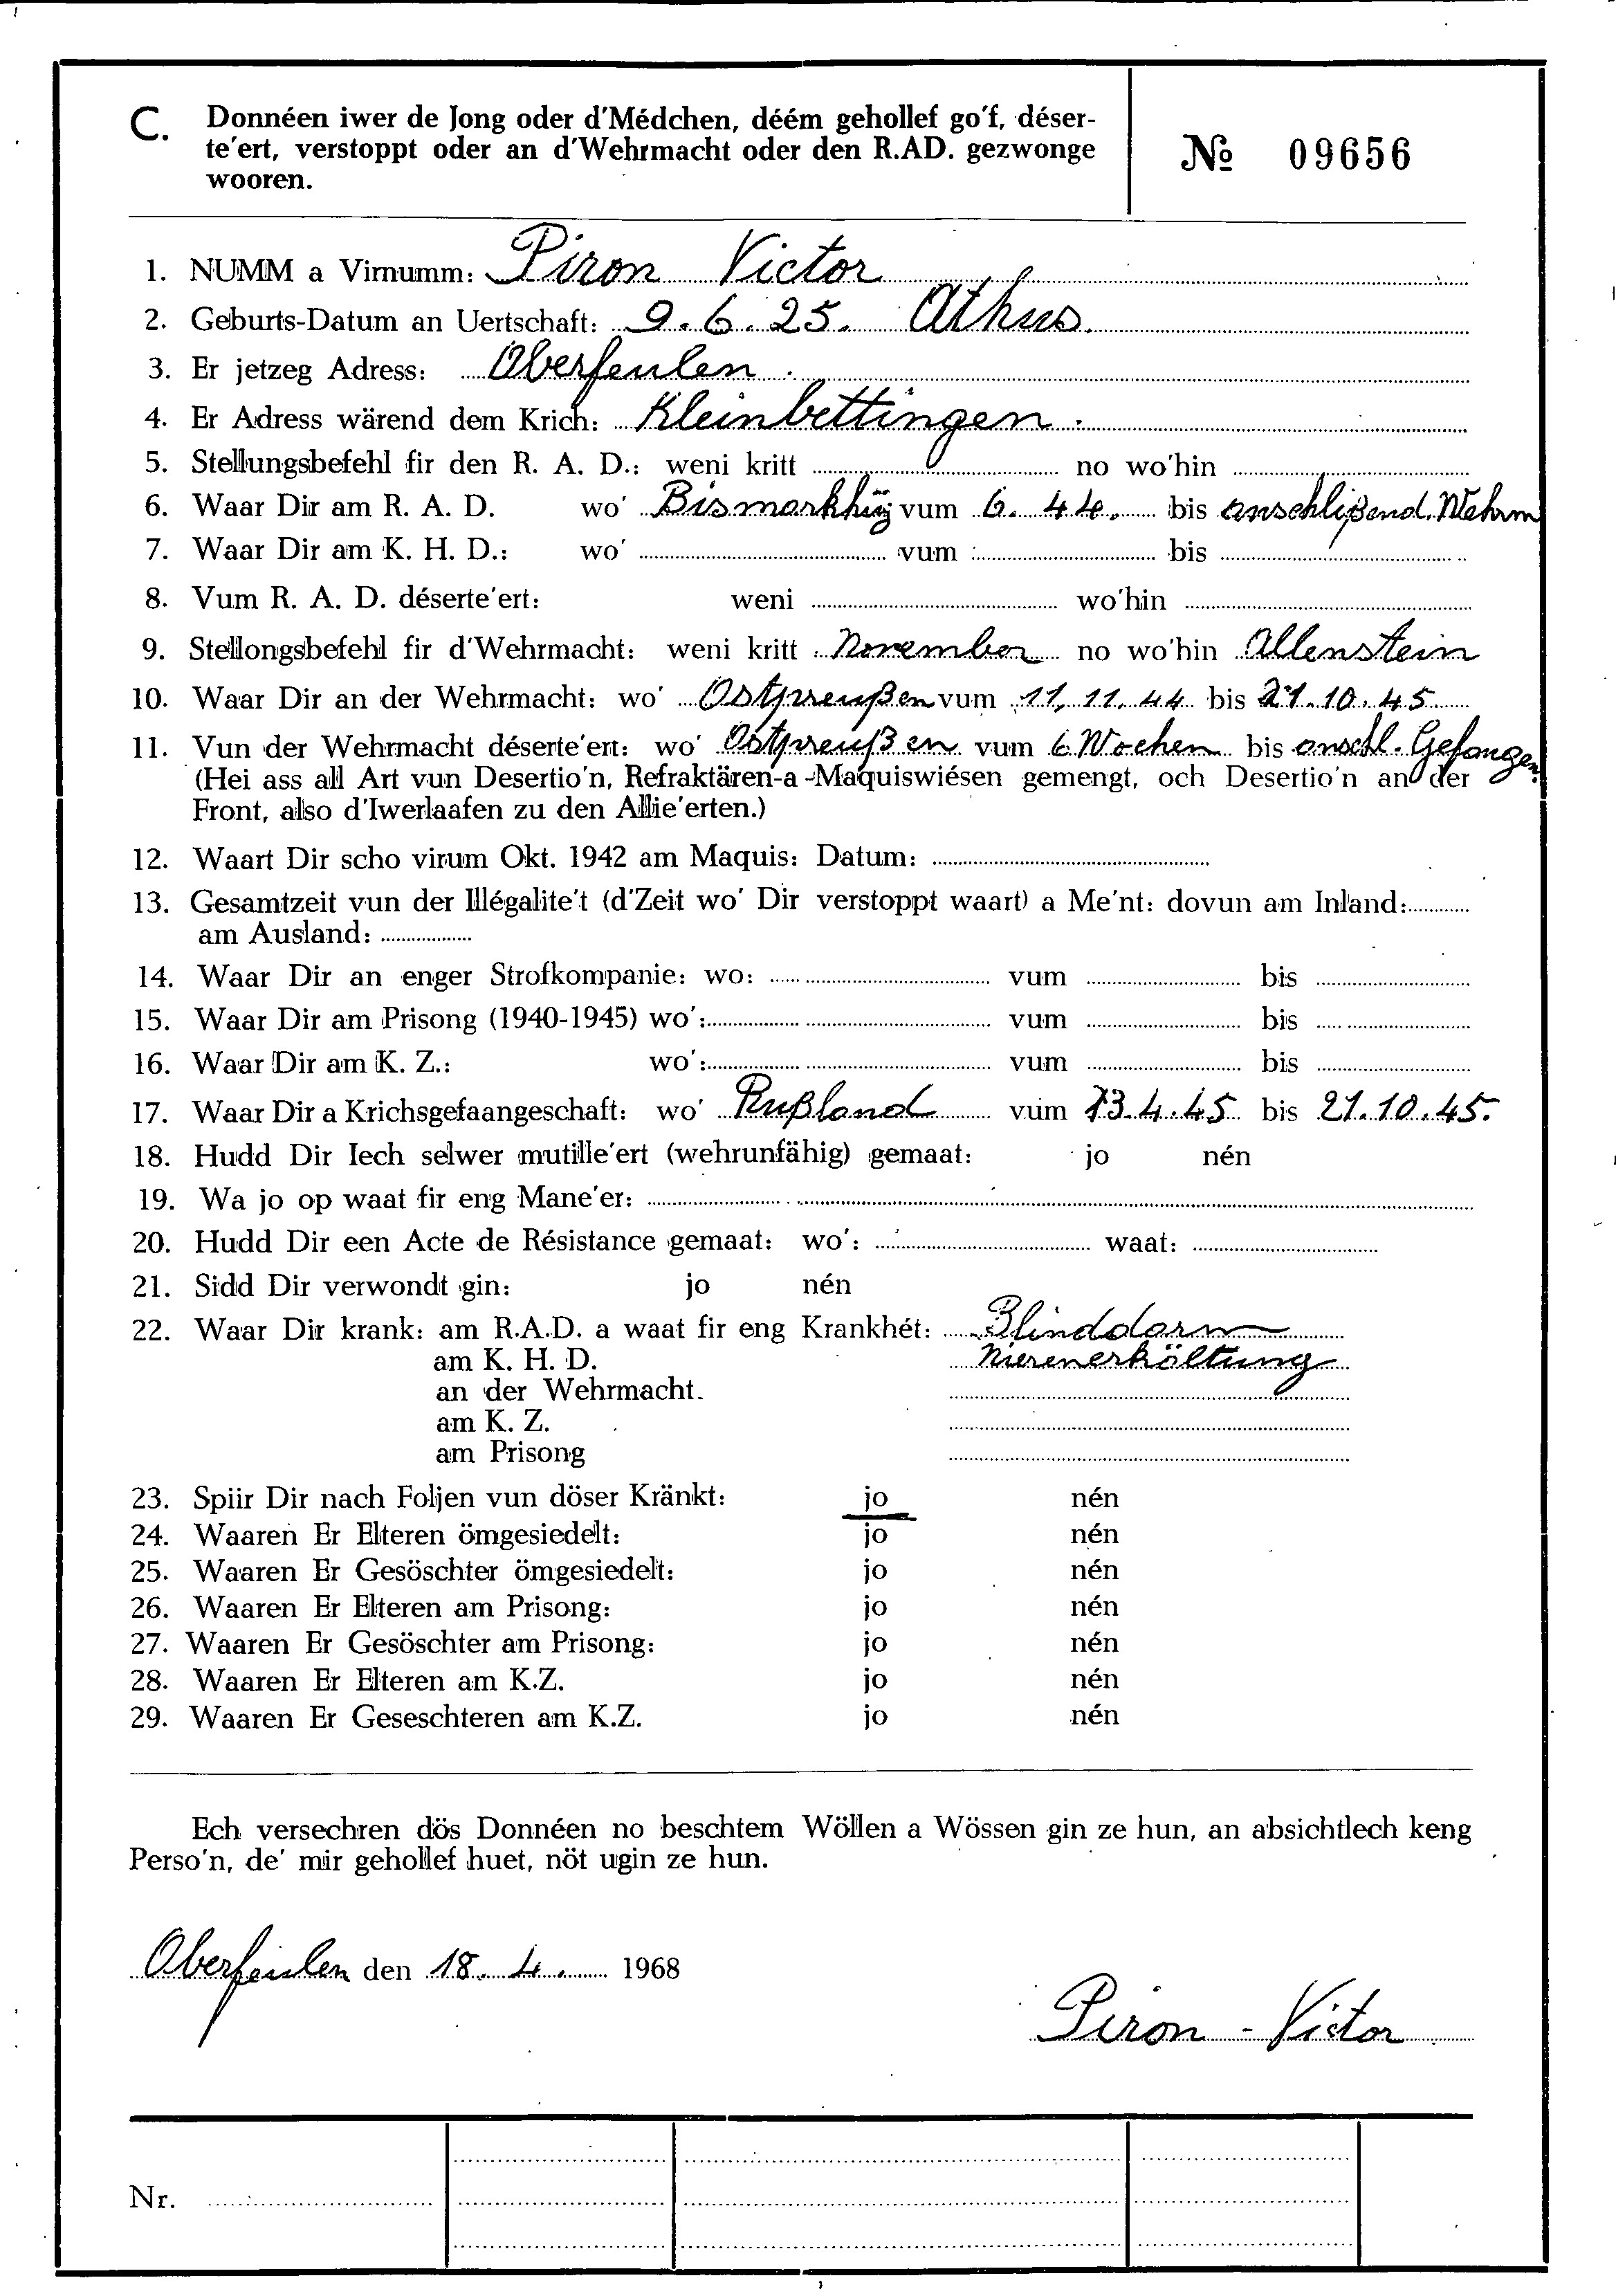 C. Donnéen iwer de Jong oder d'Médchen, déém gehollef go'f, déser-
te'ert, verstoppt oder an d'Wehrmacht oder den R.AD. gezwonge
wooren.
№ 09656
1. NUMM a Virnumm: Piron Victor
2. Geburts-Datum an Uertschaft: 9.6.25. Athus
3. Er jetzeg Adress: Oberfeulen.
4. Er Adress wärend dem Krich: Kleinbettingen.
5. Stellungsbefehl fir den R. A. D.: weni kritt no wo'hin
6. Waar Dir am R. A. D. wo' vum 6. 44. bis anschlißend. Wehrm
7. Waar Dir am K. H. D.: wo' vum bis
8. Vum R. A. D. déserte'ert: weni wo'hin
9. Stellongsbefehl fir d'Wehrmacht: weni kritt November no wo'hin Allenstein
10. Waar Dir an der Wehrmacht: wo' Ostpreußen vum 11. 11. 44 bis 21.10.45
11. Vun der Wehrmacht déserte'ert: wo' Ostpreußen vum 6 Wochen bis anschl. Gefangen.
(Hei ass all Art vun Desertio'n, Refraktären-a-Maquiswiésen gemengt, och Desertio'n an der
Front, also d'Iwerlaafen zu den Allie'erten.)
12. Waart Dir scho virum Okt. 1942 am Maquis: Datum:
13. Gesamtzeit vun der Illégalite't (d'Zeit wo' Dir verstoppt waart) a Me'nt: dovun am Inland:
am Ausland:
14. Waar Dir an enger Strofkompanie: wo: vum bis
15. Waar Dir am Prisong (1940-1945) wo': vum bis
16. Waar Dir am K. Z.: wo': vum bis
17. Waar Dir a Krichsgefaangeschaft: wo' Rußland vum 13.4.45 bis 21.10.45.
18. Hudd Dir Iech selwer mutille'ert (wehrunfähig) gemaat: jo nén
19. Wa jo op waat fir eng Mane'er:
20. Hudd Dir een Acte de Résistance gemaat: wo': waat:
21. Sidd Dir verwondt gin: jo nén
22. Waar Dir krank: am R.A.D. a waat fir eng Krankhét: Blinddarm
am K. H. D. Nierenerkältung
an der Wehrmacht.
am K. Z.
am Prisong
23. Spiir Dir nach Foljen vun döser Kränkt: jo nén
24. Waaren Er Elteren ömgesiedelt: jo nén
25. Waaren Er Gesöschter ömgesiedelt: jo nén
26. Waaren Er Elteren am Prisong: jo nén
27. Waaren Er Gesöschter am Prisong: jo nén
28. Waaren Er Elteren am K.Z. jo nén
29. Waaren Er Geseschteren am K.Z. jo nén
Ech versechren dös Donnéen no beschtem Wöllen a Wössen gin ze hun, an absichtlech keng
Perso'n, de' mir gehollef huet, nöt ugin ze hun.
Oberfeulen den 18. 4. 1968
Piron - Victor
Nr.